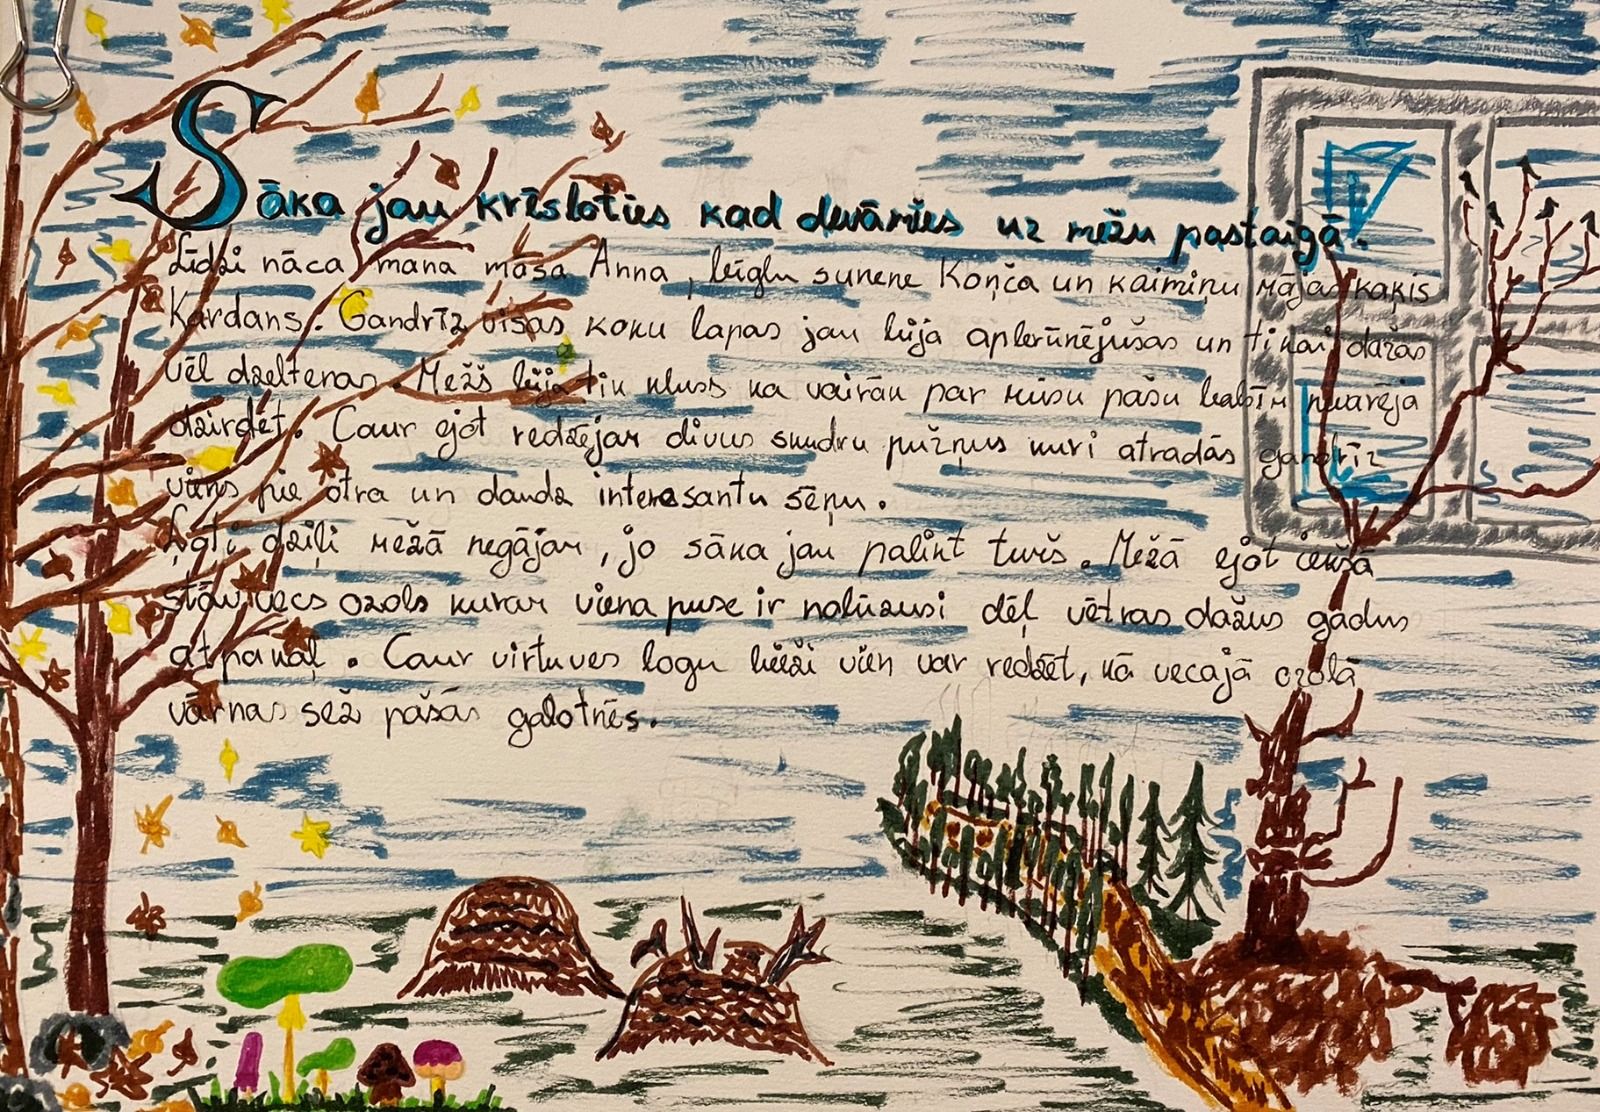 Sāka jau krēsloties kad devāmies uz mežu pastaigā.
Līdzi nāca mana māsa Anna, bīglu sunene Konča un kaimiņu mājas kaķis
Kardans. Gandrīz visas koku lapas jau bija apbrūnējušas un tikai dažas
vēl dzeltenas. Mežš bija tik kluss ka vairāk par mūsu pašu balsīm nevarēja
dzirdēt. Caur ejot redzējam divus skudru pūžņus kuri atradās gandrīz
viens pie otra un daudz interesantu sēņu.
Ļoti dziļi mežā negājam, jo sāka jau palikt tumšs. Mežā ejot iekšā
stāv vecs ozols kuram viena puse ir nolūzusi dēļ vētras dažus gadus
atpakaļ. Caur virtuves logu bieži vien var redzēt, kā vecajā ozolā
vārnas sēž pašās galotnēs.